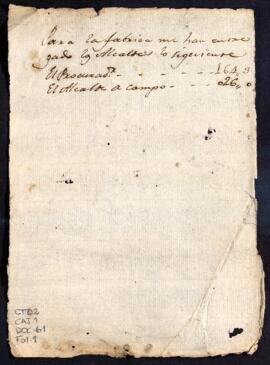 Para la fabrica me han entre
gado los Alcaldes lo siguiente
El Procurador - - - - - - 164, 3
El Alcalde a campo - - - 026, 0
CT02
CAJ 1
DOC-61
FOL-1